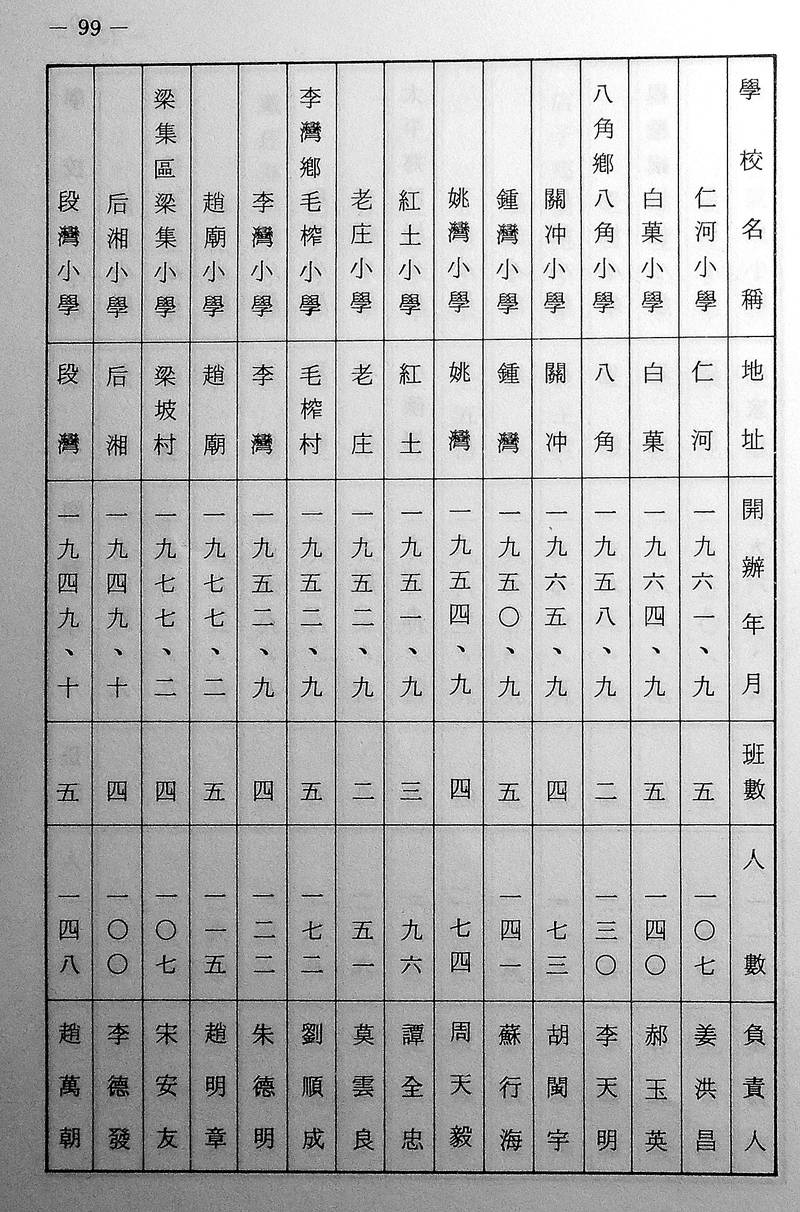 — 99 —
學校名稱 地址 開辦年月 班數 人數 負責人
仁河小學 仁河 一九六一、九 五 一〇七 姜洪昌
白菓小學 白菓 一九六四、九 五 一四〇 郝玉英
八角鄉八角小學 八角 一九五八、九 二 一三〇 李天明
關冲小學 關冲 一九六五、九 四 七三 胡閩宇
鍾灣小學 鍾灣 一九五〇、九 五 一四一 蘇行海
姚灣小學 姚灣 一九五四、九 四 七四 周天毅
紅土小學 紅土 一九五一、九 三 九六 譚全忠
老庄小學 老庄 一九五二、九 二 五一 莫雲良
李灣鄉毛榨小學 毛榨村 一九五二、九 五 一七二 劉順成
李灣小學 李灣 一九五二、九 四 一二二 朱德明
趙廟小學 趙廟 一九七七、二 五 一一五 趙明章
梁集區梁集小學 梁坡村 一九七七、二 四 一〇七 宋安友
后湘小學 后湘 一九四九、十 四 一〇〇 李德發
段灣小學 段灣 一九四九、十 五 一四八 趙萬朝